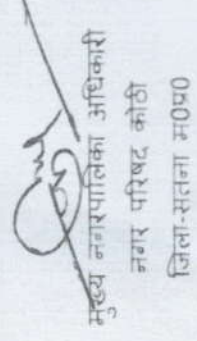 मुख्य नगरपालिका अधिकारी
नगर परिषद कोठी
जिला-सतना म0प्र0